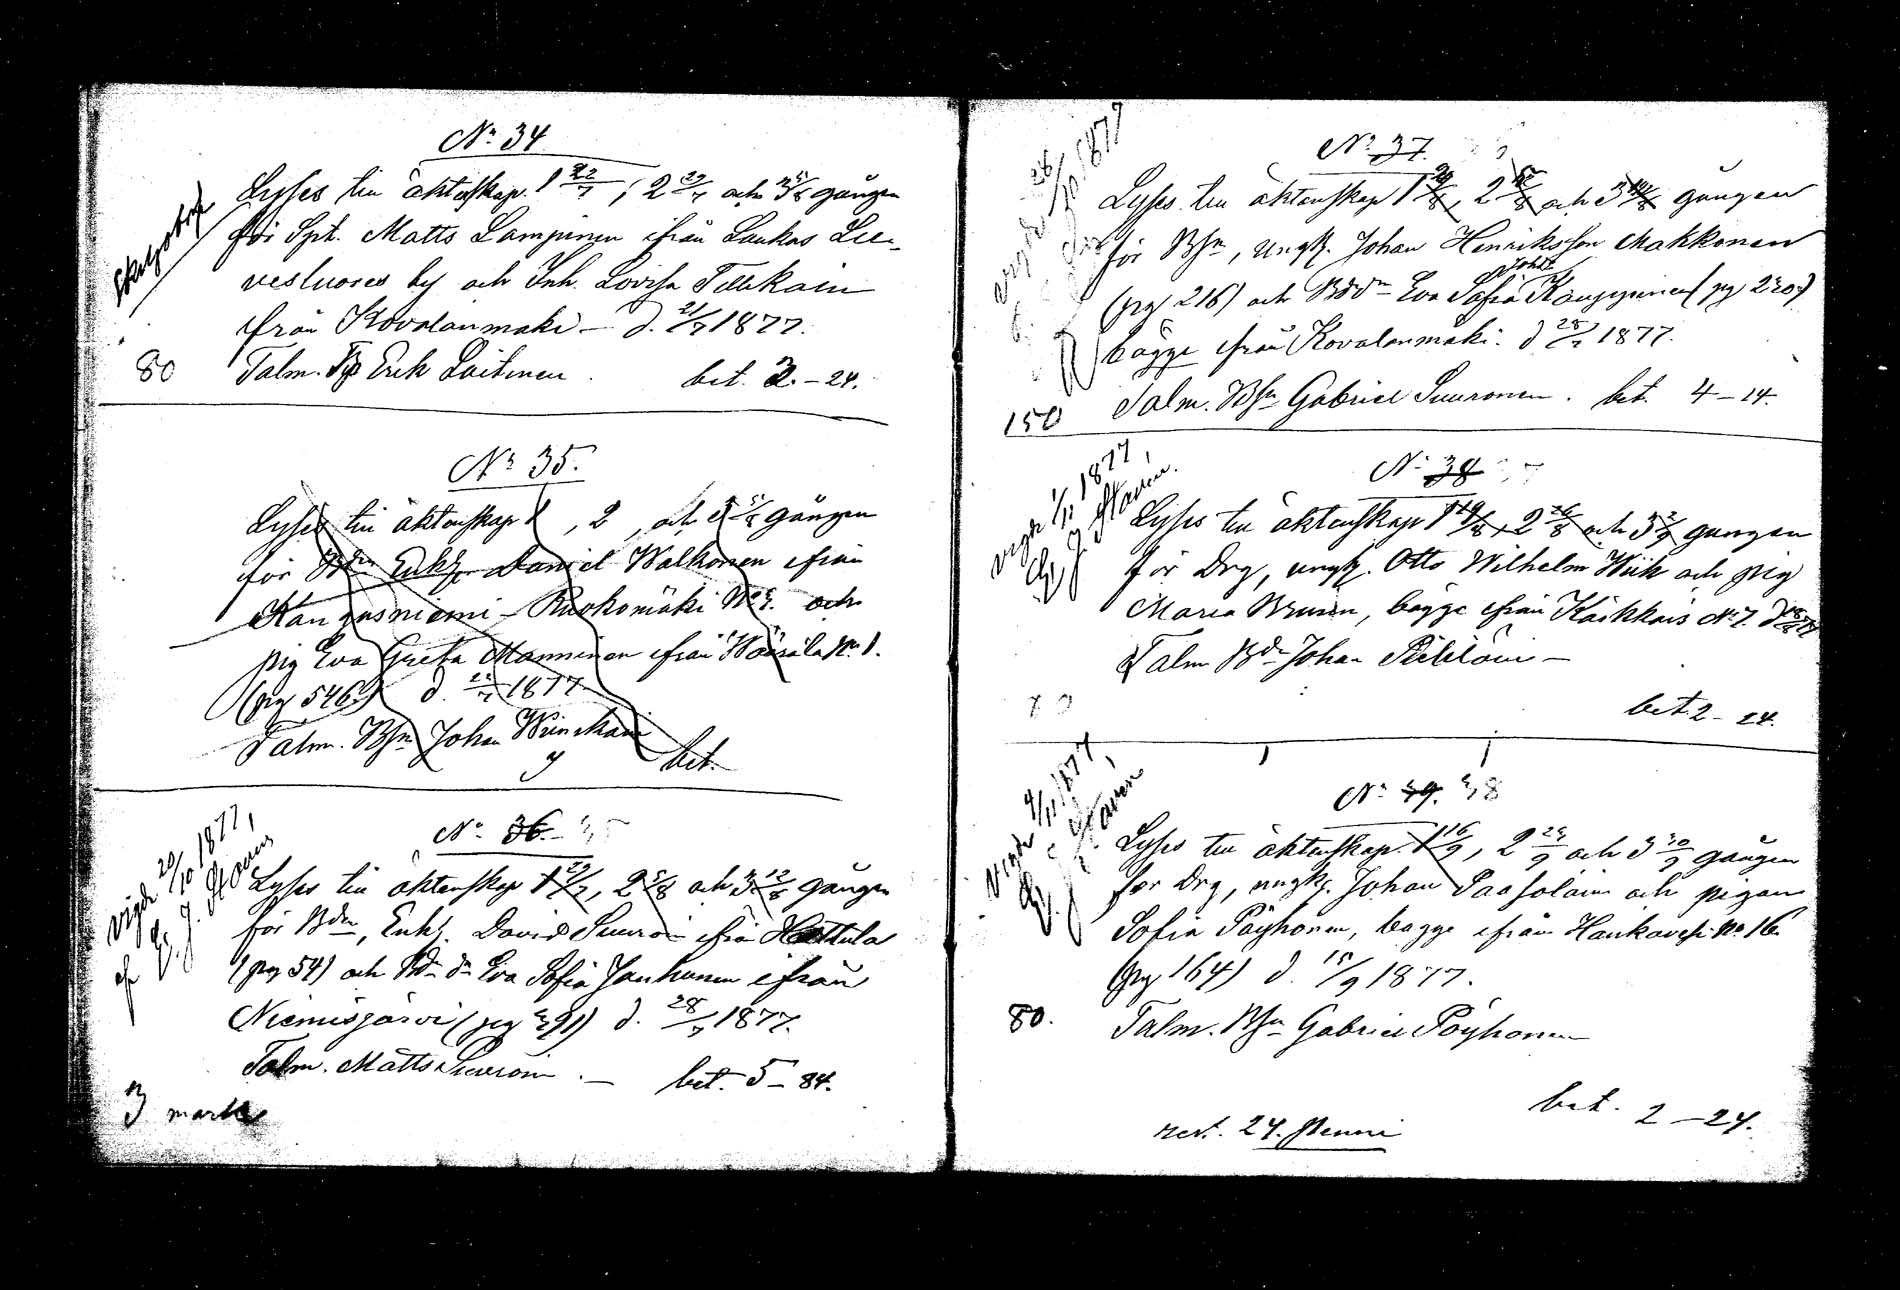 No 34
Lyses till äktenskap 1 22/7, 2 29/7 och 3 5/8 gången
för Spt. Matts Lampinen ifrån Laukas Lie-
vestuores by och Inh. Lovisa Tiukain
från Kovalanmäki – d. 21/7 1877.
80 Talm. Erik Laitinen. bet. 2 – 24.
No 35.
Lyses till äktenskap 1, 2, och 3 5/8 gången
för Bdn Enkl. Daniel Walkonen ifrån
Kangasniemi Ruokomäki No 3. och
pig Eva Greta Manninen ifrån Wäärälä No 1.
(pag 546.) d. 22/7 1877
Talm. Bsn Johan
bet.
vigde 20/10 1877,
af
No 36. 35
Lyses till äktenskap 1 29/7, 2 5/8 och 3 12/8 gången
för Bdn, Enkl. David Suuroin ifrån Hattula
(pag 54) och Bd. dr Eva Sofia Janhunen ifrån
Niemisjärvi (pag 391) d. 28/7 1877.
Talm. Matts Suuroin. – bet. 5 – 84.
3 mark
28/10 1877
No 37.
Lyses till äktenskap 1 29/8, 2 och 3 gången
för Bsn, ungk. Johan Henriksson Makkonen
(pag 216) och Bddr Eva Sofia Kauppinen (pag 220.)
bägge ifrån Kovalanmäki. d 28/7 1877.
150 Talm. Bsn Gabriel Suuronen. bet. 4 – 14.
vigde 1/11 1877,
No 38
Lyses till äktenskap 1 19/8, 2 26/8 och 3 2/9 gangen
för Drg, ungk. Otto Wilhelm Wiik och pig
Maria Bruun, bägge ifrån Kärkkäis No 7.
Talm Bdn Johan
bet. 2 – 24.
vigde 4/11 1877,
No 39. 38
Lyses till äktenskap 1 16/9, 2 23/9 och 3 30/9 gången
för Drg, ungk. Johan Paasolain och pigan
Sofia Pöyhonen, bägge ifrån Hankavesi No 16
(pag 164) d. 15/9 1877.
80. Talm. Bsn Gabriel Pöyhonen
bet. 2 – 24.
rest. 24. penni